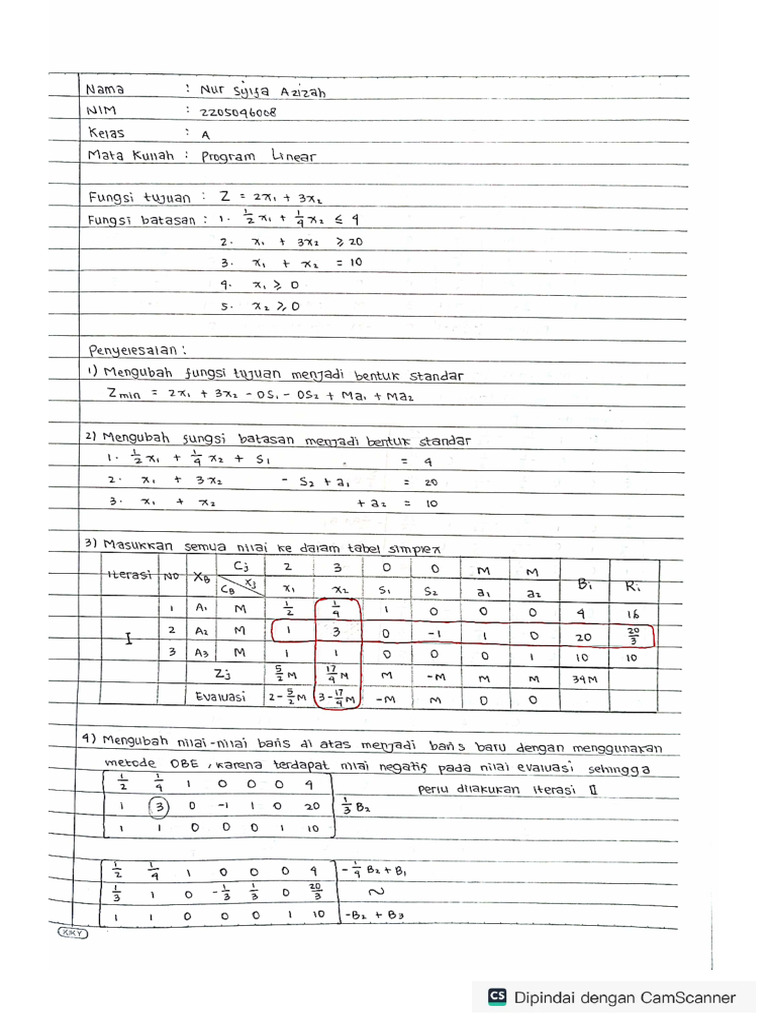 Nama : Nur Syifa Azizah
NIM : 2205046008
Kelas : A
Mata Kuliah : Program Linear
Fungsi tujuan : Z = 2x₁ + 3x₂
Fungsi batasan : 1. 1/2 x₁ + 1/4 x₂ ≤ 4
2. x₁ + 3x₂ ≥ 20
3. x₁ + x₂ = 10
4. x₁ ≥ 0
5. x₂ ≥ 0
Penyelesaian :
1) Mengubah fungsi tujuan menjadi bentuk standar
Z min = 2x₁ + 3x₂ - 0S₁ - 0S₂ + Ma₁ + Ma₂
2) Mengubah fungsi batasan menjadi bentuk standar
1. 1/2 x₁ + 1/4 x₂ + S₁ = 4
2. x₁ + 3x₂ - S₂ + a₁ = 20
3. x₁ + x₂ + a₂ = 10
3) Masukkan semua nilai ke dalam tabel simplex
Iterasi NO X_B Cj 2 3 0 0 M M Bi Ri
C_B Xj x₁ x₂ S₁ S₂ a₁ a₂
I 1 A₁ M 1/2 1/4 1 0 0 0 4 16
2 A₂ M 1 3 0 -1 1 0 20 20/3
3 A₃ M 1 1 0 0 0 1 10 10
Zj 5/2 M 17/4 M M -M M M 34M
Evaluasi 2-5/2 M 3-17/4 M -M M 0 0
4) Mengubah nilai-nilai baris di atas menjadi baris baru dengan menggunakan
metode OBE, karena terdapat nilai negatif pada nilai evaluasi sehingga
perlu dilakukan iterasi II
1/2 1/4 1 0 0 0 4
1 3 0 -1 1 0 20 1/3 B₂
1 1 0 0 0 1 10
1/2 1/4 1 0 0 0 4 -1/4 B₂ + B₁
1/3 1 0 -1/3 1/3 0 20/3 ~
1 1 0 0 0 1 10 -B₂ + B₃
KKY
CS Dipindai dengan CamScanner